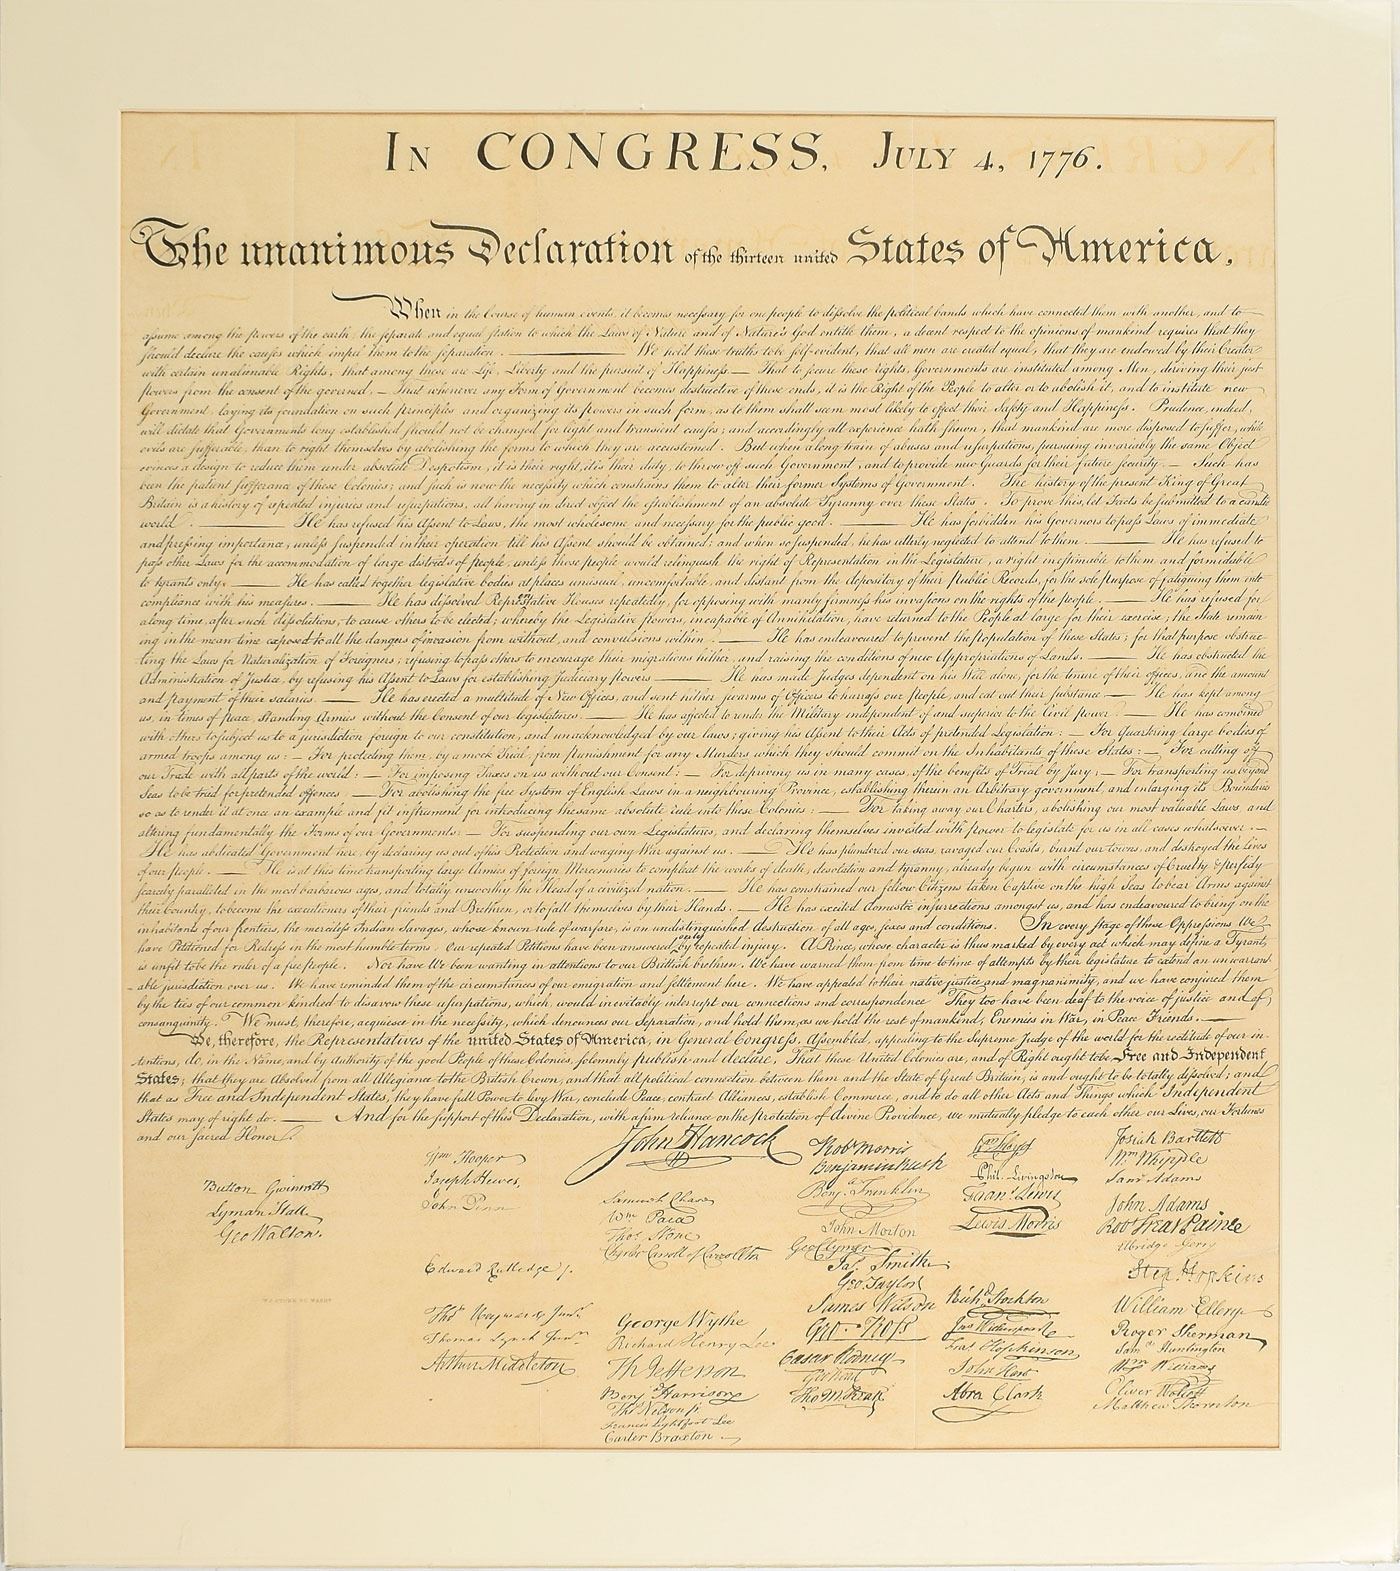 IN CONGRESS, JULY 4, 1776.
The unanimous Declaration of the thirteen united States of America,
When in the Course of human events, it becomes necessary for one people to dissolve the political bands which have connected them with another, and to
assume among the powers of the earth, the separate and equal station to which the Laws of Nature and of Nature's God entitle them, a decent respect to the opinions of mankind requires that they
should declare the causes which impel them to the separation. — We hold these truths to be self-evident, that all men are created equal, that they are endowed by their Creator
with certain unalienable Rights, that among these are Life, Liberty and the pursuit of Happiness — That to secure these rights, Governments are instituted among Men, deriving their just
powers from the consent of the governed, — That whenever any Form of Government becomes destructive of these ends, it is the Right of the People to alter or to abolish it, and to institute new
Government, laying its foundation on such principles and organizing its powers in such form, as to them shall seem most likely to effect their Safety and Happiness. Prudence, indeed,
will dictate that Governments long established should not be changed for light and transient causes; and accordingly all experience hath shewn, that mankind are more disposed to suffer, while
evils are sufferable, than to right themselves by abolishing the forms to which they are accustomed. But when a long train of abuses and usurpations, pursuing invariably the same Object
evinces a design to reduce them under absolute Despotism, it is their right, it is their duty, to throw off such Government, and to provide new Guards for their future security. — Such has
been the patient sufferance of these Colonies; and such is now the necessity which constrains them to alter their former Systems of Government. The history of the present King of Great
Britain is a history of repeated injuries and usurpations, all having in direct object the establishment of an absolute Tyranny over these States. To prove this, let Facts be submitted to a candid
world. — He has refused his Assent to Laws, the most wholesome and necessary for the public good. — He has forbidden his Governors to pass Laws of immediate
and pressing importance, unless suspended in their operation till his Assent should be obtained; and when so suspended, he has utterly neglected to attend to them. — He has refused to
pass other Laws for the accommodation of large districts of people, unless those people would relinquish the right of Representation in the Legislature, a right inestimable to them and formidable
to tyrants only. — He has called together legislative bodies at places unusual, uncomfortable, and distant from the depository of their Public Records, for the sole purpose of fatiguing them into
compliance with his measures. — He has dissolved Representative Houses repeatedly, for opposing with manly firmness his invasions on the rights of the people. — He has refused for
a long time, after such dissolutions, to cause others to be elected; whereby the Legislative powers, incapable of Annihilation, have returned to the People at large for their exercise; the State remain-
ing in the mean time exposed to all the dangers of invasion from without, and convulsions within. — He has endeavoured to prevent the population of these States; for that purpose obstruc-
ting the Laws for Naturalization of Foreigners; refusing to pass others to encourage their migrations hither, and raising the conditions of new Appropriations of Lands. — He has obstructed the
Administration of Justice, by refusing his Assent to Laws for establishing Judiciary powers — He has made Judges dependent on his Will alone, for the tenure of their offices, and the amount
and payment of their salaries. — He has erected a multitude of New Offices, and sent hither swarms of Officers to harrass our people, and eat out their substance. — He has kept among
us, in times of peace, Standing Armies without the Consent of our legislatures. — He has affected to render the Military independent of and superior to the Civil power. — He has combined
with others to subject us to a jurisdiction foreign to our constitution, and unacknowledged by our laws; giving his Assent to their Acts of pretended Legislation: — For Quartering large bodies of
armed troops among us: — For protecting them, by a mock Trial, from punishment for any Murders which they should commit on the Inhabitants of these States: — For cutting off
our Trade with all parts of the world: — For imposing Taxes on us without our Consent: — For depriving us in many cases, of the benefits of Trial by Jury; — For transporting us beyond
Seas to be tried for pretended offences — For abolishing the free System of English Laws in a neighbouring Province, establishing therein an Arbitrary government, and enlarging its Boundaries
so as to render it at once an example and fit instrument for introducing the same absolute rule into these Colonies: — For taking away our Charters, abolishing our most valuable Laws, and
altering fundamentally the Forms of our Governments: — For suspending our own Legislatures, and declaring themselves invested with power to legislate for us in all cases whatsoever. —
He has abdicated Government here, by declaring us out of his Protection and waging War against us. — He has plundered our seas, ravaged our Coasts, burnt our towns, and destroyed the lives
of our people. — He is at this time transporting large Armies of foreign Mercenaries to compleat the works of death, desolation and tyranny, already begun with circumstances of Cruelty & perfidy
scarcely paralleled in the most barbarous ages, and totally unworthy the Head of a civilized nation. — He has constrained our fellow Citizens taken Captive on the high Seas to bear Arms against
their Country, to become the executioners of their friends and Brethren, or to fall themselves by their Hands. — He has excited domestic insurrections amongst us, and has endeavoured to bring on the
inhabitants of our frontiers, the merciless Indian Savages, whose known rule of warfare, is an undistinguished destruction of all ages, sexes and conditions. In every stage of these Oppressions We
have Petitioned for Redress in the most humble terms: Our repeated Petitions have been answered only by repeated injury. A Prince, whose character is thus marked by every act which may define a Tyrant,
is unfit to be the ruler of a free people. Nor have We been wanting in attentions to our Brittish brethren. We have warned them from time to time of attempts by their legislature to extend an unwarrant-
able jurisdiction over us. We have reminded them of the circumstances of our emigration and settlement here. We have appealed to their native justice and magnanimity, and we have conjured them
by the ties of our common kindred to disavow these usurpations, which, would inevitably interrupt our connections and correspondence They too have been deaf to the voice of justice and of
consanguinity. We must, therefore, acquiesce in the necessity, which denounces our Separation, and hold them, as we hold the rest of mankind, Enemies in War, in Peace Friends. —
We, therefore, the Representatives of the united States of America, in General Congress, Assembled, appealing to the Supreme Judge of the world for the rectitude of our in-
tentions, do, in the Name, and by authority of the good People of these Colonies, solemnly publish and declare, That these United Colonies are, and of Right ought to be Free and Independent
States; that they are Absolved from all Allegiance to the British Crown, and that all political connection between them and the State of Great Britain, is and ought to be totally dissolved; and
that as Free and Independent States, they have full Power to levy War, conclude Peace, contract Alliances, establish Commerce, and to do all other Acts and Things which Independent
States may of right do. — And for the support of this Declaration, with a firm reliance on the protection of divine Providence, we mutually pledge to each other our Lives, our Fortunes
and our sacred Honor.
Button Gwinnett
Lyman Hall
Geo Walton.
Wm Hooper
Joseph Hewes,
John Penn
Edward Rutledge /.
Thos Heyward Junr.
Thomas Lynch Junr.
Arthur Middleton
John Hancock
Samuel Chase
Wm Paca
Thos Stone
Charles Carroll of Carrollton
George Wythe
Richard Henry Lee
Th Jefferson
Benj Harrison
Thos Nelson jr.
Francis Lightfoot Lee
Carter Braxton
Robt Morris
Benjamin Rush
Benj. Franklin
John Morton
Geo Clymer
Jas. Smith
Geo. Taylor
James Wilson
Geo. Ross
Caesar Rodney
Geo Read
Tho M:Kean
Wm Floyd
Phil. Livingston
Frans. Lewis
Lewis Morris
Richd. Stockton
Jno Witherspoon
Fras. Hopkinson
John Hart
Abra Clark
Josiah Bartlett
Wm Whipple
Saml Adams
John Adams
Robt Treat Paine
Elbridge Gerry
Step Hopkins
William Ellery
Roger Sherman
Sam el Huntington
Wm Williams
Oliver Wolcott
Matthew Thornton